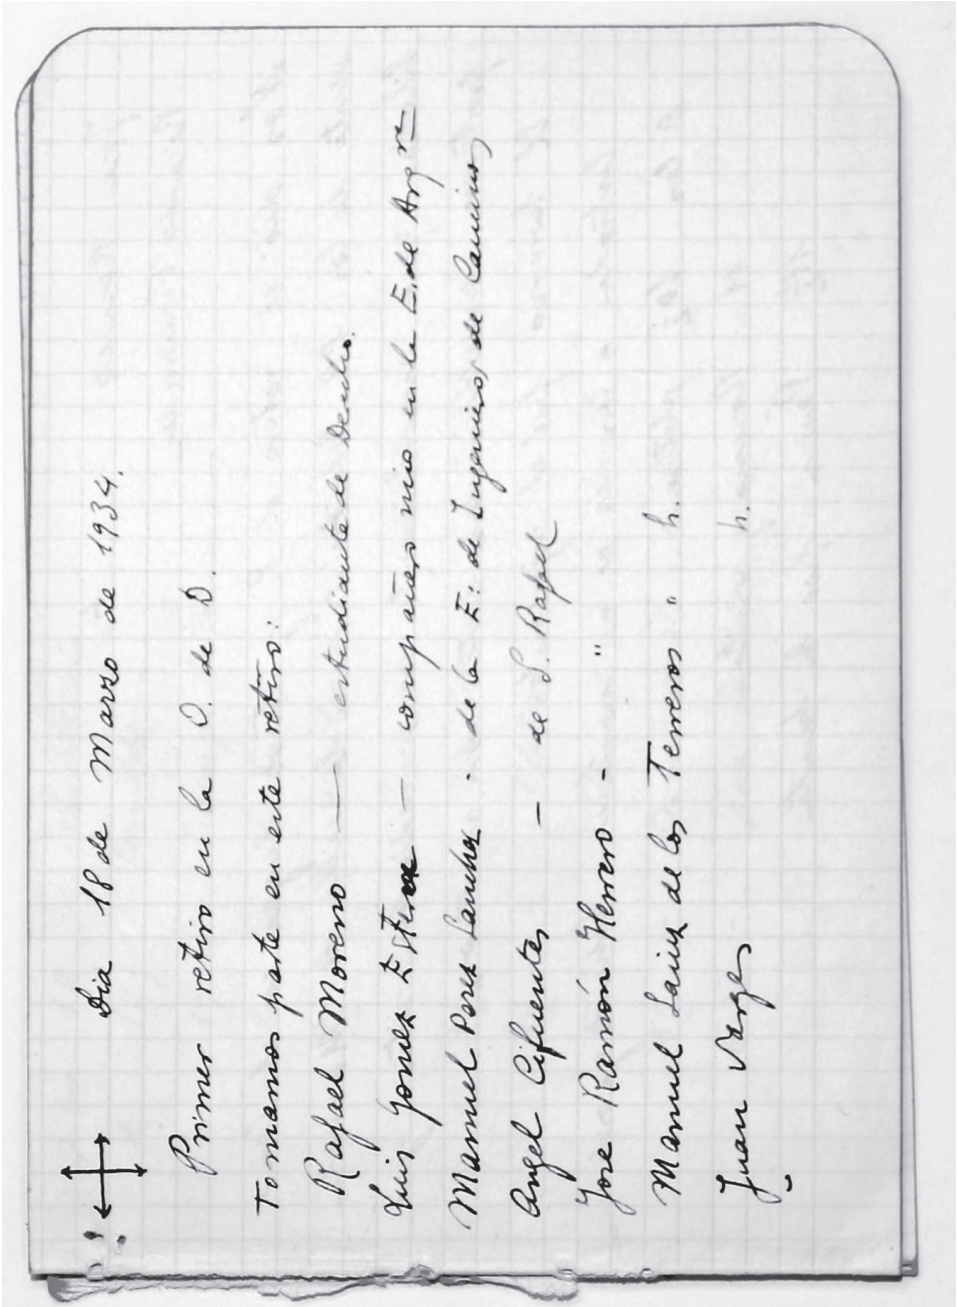 Dia 18 de Marzo de 1934.
Primer retiro en la O. de D.
Tomamos parte en este retiro:
Rafael Moreno — estudiante de Dcho.
Luis Gomez Esteve — compañero mio en la E. de Arqᵗᵃ
Manuel Perez Sanchez - de la E: de Ingenieros de Caminos
Angel Cifuentes — de S. Rafael
Jose Ramón Herrero - "
Manuel Sainz de los Terreros " h.
Juan Vargas h.